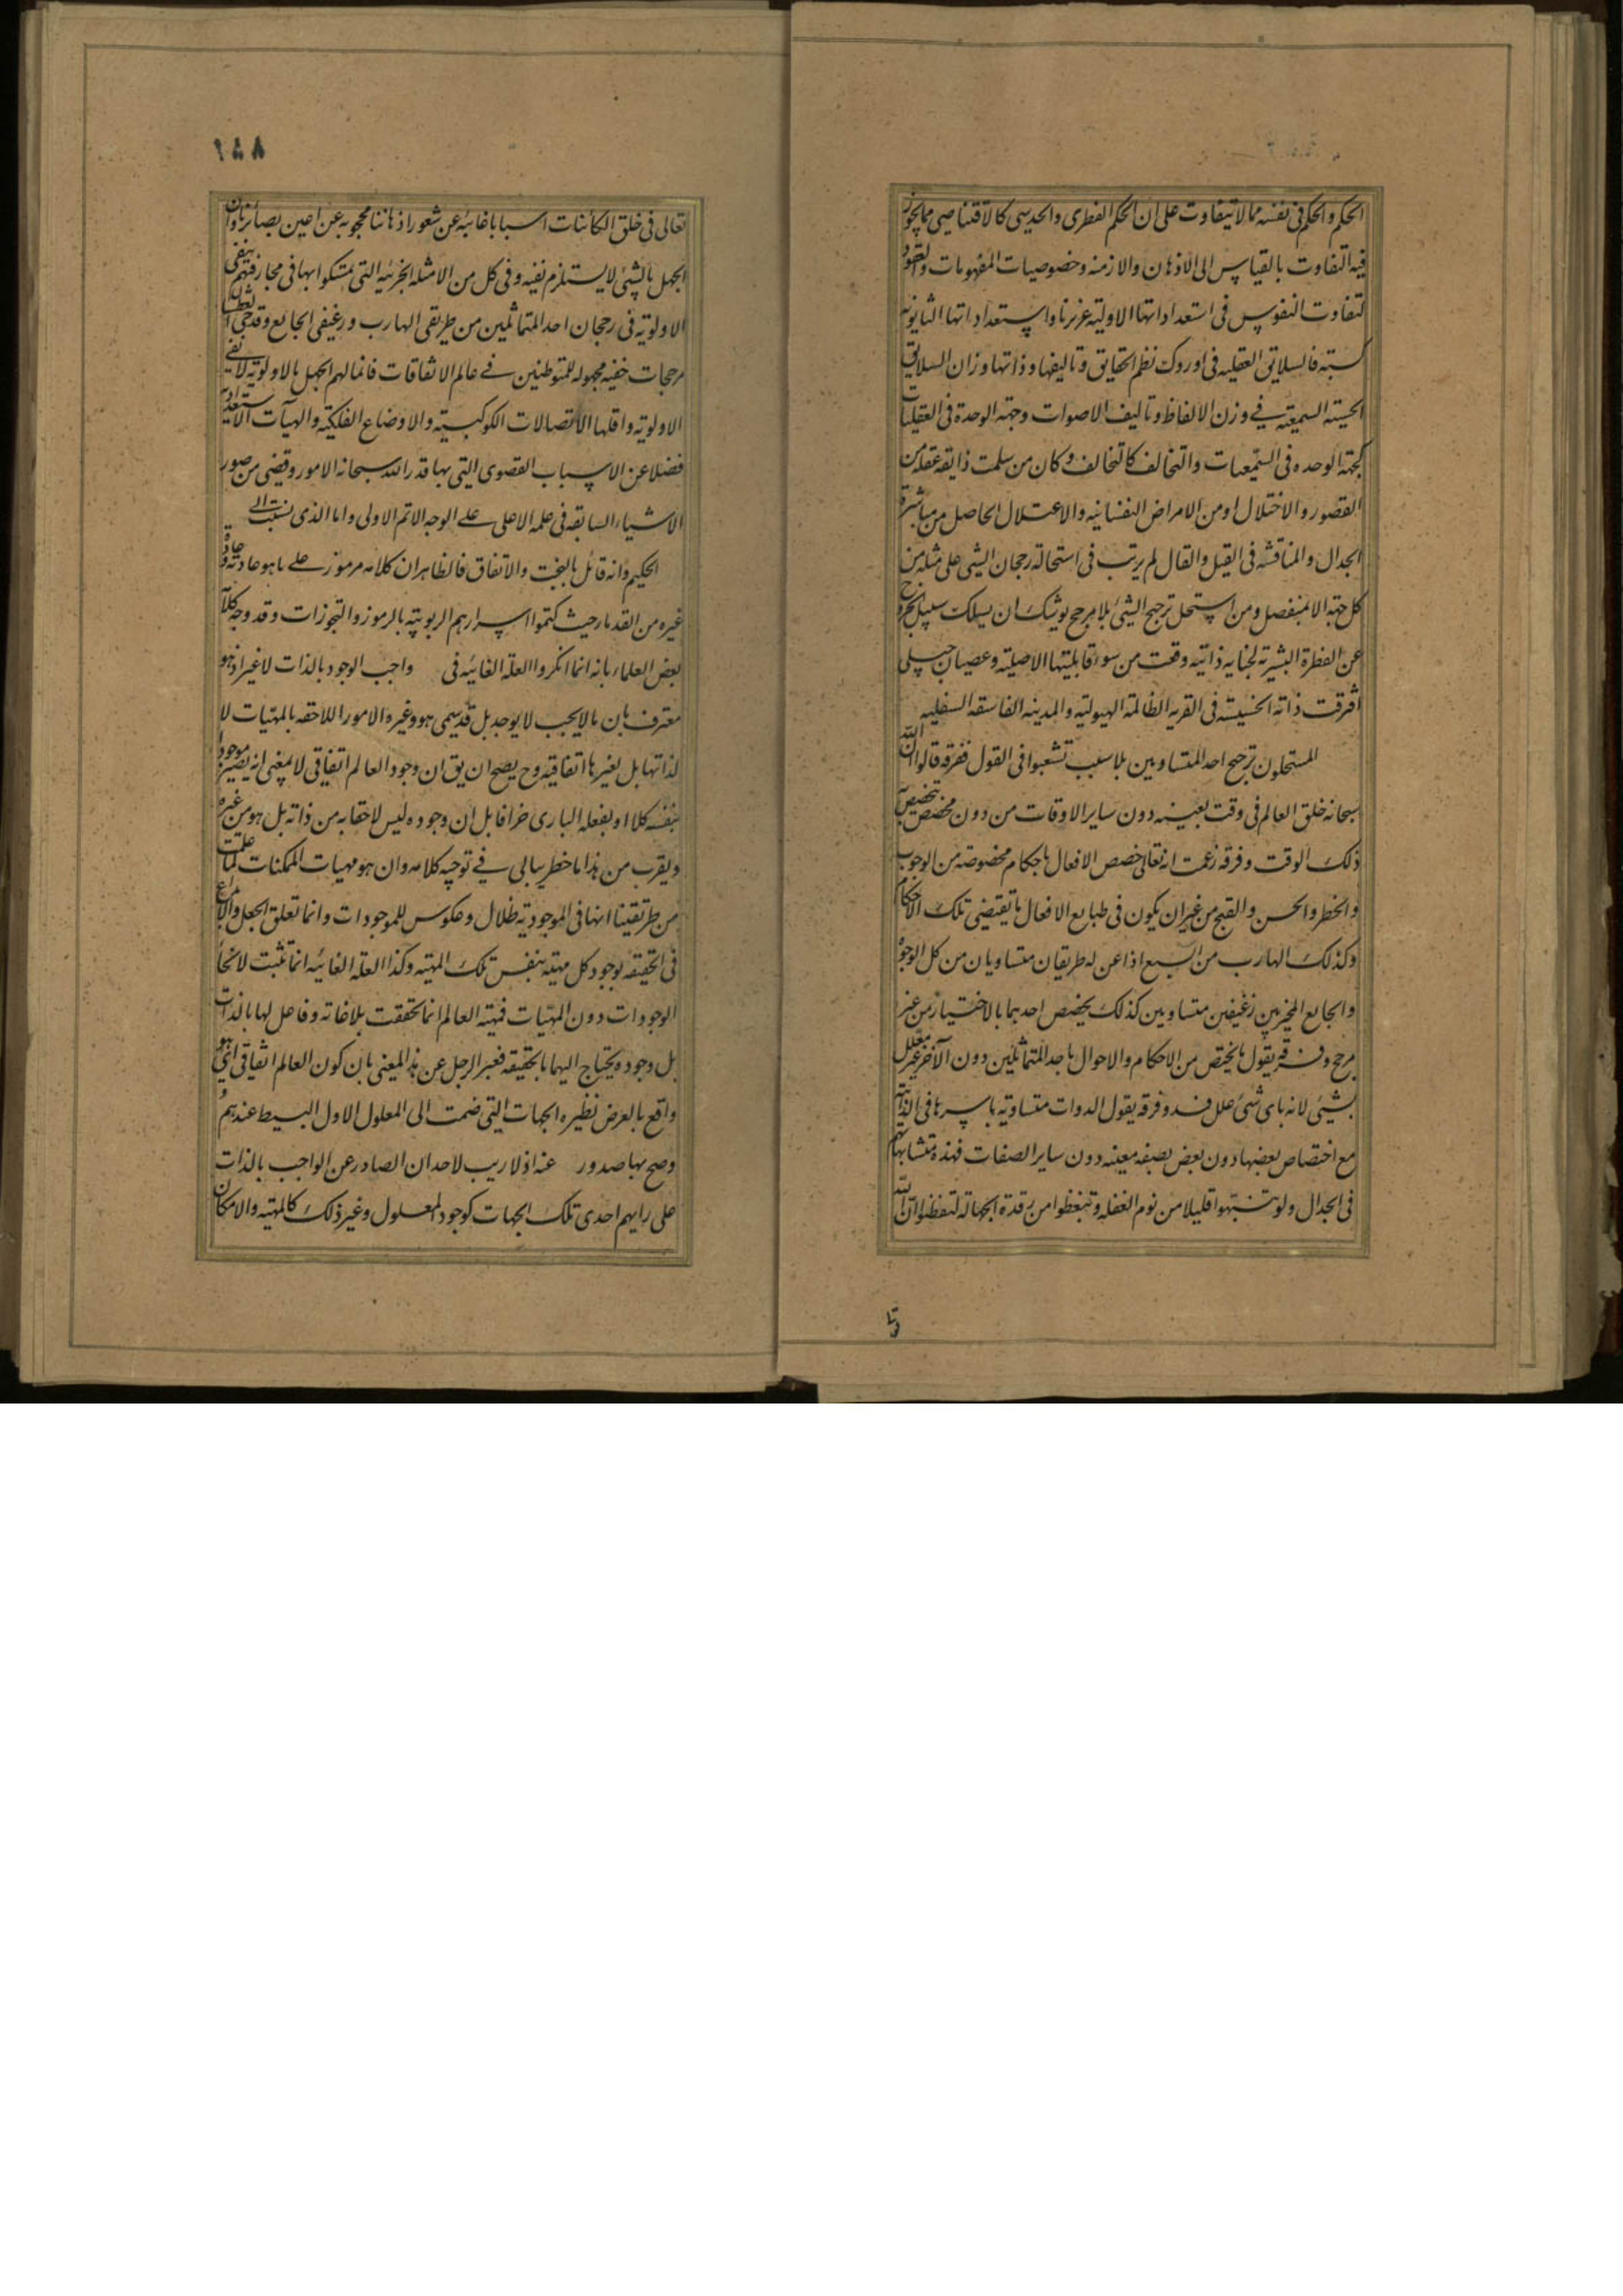 الحكم والحكم فى نفسه مما لا يتفاوت على ان الحكم الفطرى والحدسى كالاقتناصى مما يجوز
فيه التفاوت بالقياس الى الاذهان والازمنه وخصوصيات المفهومات والعقود
لتفاوت النفوس فى استعداداتها الاوليه غريزيا واستعداداتها الثانويه
كسبيه فالسلايق العقليه فى اوروك نظم الحقايق وتاليفها ووزانها وزان السلايق
الحسيه السمعيه فے وزن الالفاظ وتاليف الاصوات وجهه الوحدة فى العقليات
كجهه الوحده فى السمعيات والتخالف كالتخالف وكان من سلمت ذايقه عقله من
القصور والاختلال او من الامراض النفسانيه والاعتلال الحاصل من مباشرة
الجدال والمناقشه فى القيل والقال لم يرتب فى استحالة رجحان الشيئ على مثله من
كل جهه الا بمنفصل ومن استحل ترجيح الشيئ بلا مرجح يوشك ان يسلك سبيل الخروج
عن الفطرة البشريه لخباثه ذاتيه وقعت من سوء قابليتها الاصليه وعصيان جبلى
اقرفت ذاته الخسيسه فى القريه الظالمه الهيوليه والمدينه الفاسقه السفليه
المستحلون ترجيح احد المتساويين بلا سبب تشعبوا فى القول ففرقه قالوا ان الله
سبحانه خلق العالم فى وقت بعينه دون ساير الاوقات من دون مخصص يتخصص به
ذلك الوقت وفرقه زعمت انه تعالى خصص الافعال باحكام مخصوصه من الوجوب
والخطر والحسن والقبح من غير ان يكون فى طبايع الافعال ما يقتضى تلك الاحكام
وكذلك الهارب من السبع اذا عن له طريقان متساويان من كل الوجوه
والجايع المخير بين رغيفين متساويين كذلك يخصص احدهما بالاختيار من غير
مرجح وفرقه يقول ما يختص من الاحكام والاحوال باحد المتماثلين دون الآخر غير معلل
بشيئ لانه باى شئ علل فسد وفرقه يقول الدوات متساويه باسرها فى الذاتيه
مع اختصاص بعضها دون بعض بصفه معينه دون ساير الصفات فهذه متشابهاتهم
فى الجدال ولو تنبهوا قليلا من نوم الغفله وتيقظوا من رقدة الجهاله لتفطنوا ان الله
۱۵۸
تعالى فى خلق الكائنات اسبابا غائبه عن شعور اذهاننا محجوبه عن اعين بصائرنا وان
الجهل بالشئ لا يستلزم نفيه وفى كل من الامثله الجزئيه التى تمسكوا بها فى مجازفتهم بنفى
الاولويه فى رجحان احد المتماثلين من طريقى الهارب ورغيفى الجايع وقدحى العطشان
مرجحات خفيه مجهوله للمتوطنين فے عالم الاتفاقات فانما لهم الجهل بالاولويه لا نفى
الاولويه واقلها الاتصالات الكوكبيه والاوضاع الفلكيه والهيآت الاستعداديه
فضلا عن الاسباب القصوى التى بها قدر الله سبحانه الامور وقضى من صور
الاشياء السابقه فى علمه الاعلى على الوجه الاتم الاولى واما الذى نسبت الى
الحكيم وانه قائل بالبخت والاتفاق فالظاهر ان كلامه مرموز علے ما هو عادته وعادة
غيره من القدماء حيث كتموا اسرارهم الربوبيه بالرموز والتجوزات وقد وجه كلامه
بعض العلماء بانه انما انكروا العلة الغائيه فى واجب الوجود بالذات لا غير اذ هو
معترف بان ما لا يجب لا يوجد بل قد يسمى هو وغيره الامور اللاحقه بالمهيات لا
لذاتها بل لغيرها اتفاقيه وح يصح ان يق ان وجود العالم اتفاقى لا بمعنى انه يصير موجودا
بنفسه كلا او بفعله البارى خرافا بل ان وجوده ليس لاحقا به من ذاته بل هو من غيره
ويقرب من هذا ما خطر ببالى فے توجيه كلامه وان هو مهيات الممكنات لما علمت
من طريقتنا انها فى الموجوديه ظلال وعكوس للموجودات وانما تعلق الجعل والابداع
فى الحقيقه بوجود كل مهيه بنفس تلك المهيه وكذا العله الغائيه انما تثبت لانحأ
الوجودات دون المهيات فمهيه العالم انما تحققت بلا غاته وفاعل لها بالذات
بل وجوده يحتاج اليهما بالحقيقه فعبر الرجل عن هذا المعنى بان كون العالم اتفاقى اى هو
واقع بالعرض نظيره الجهات التى ضمت الى المعلول الاول البسيط عندهم و
وصح بها صدور عنه اذ لا ريب لاحد ان الصادر عن الواجب بالذات
على رايهم احدى تلك الجهات كوجود المعلول وغير ذلك كالمهيه والامكان